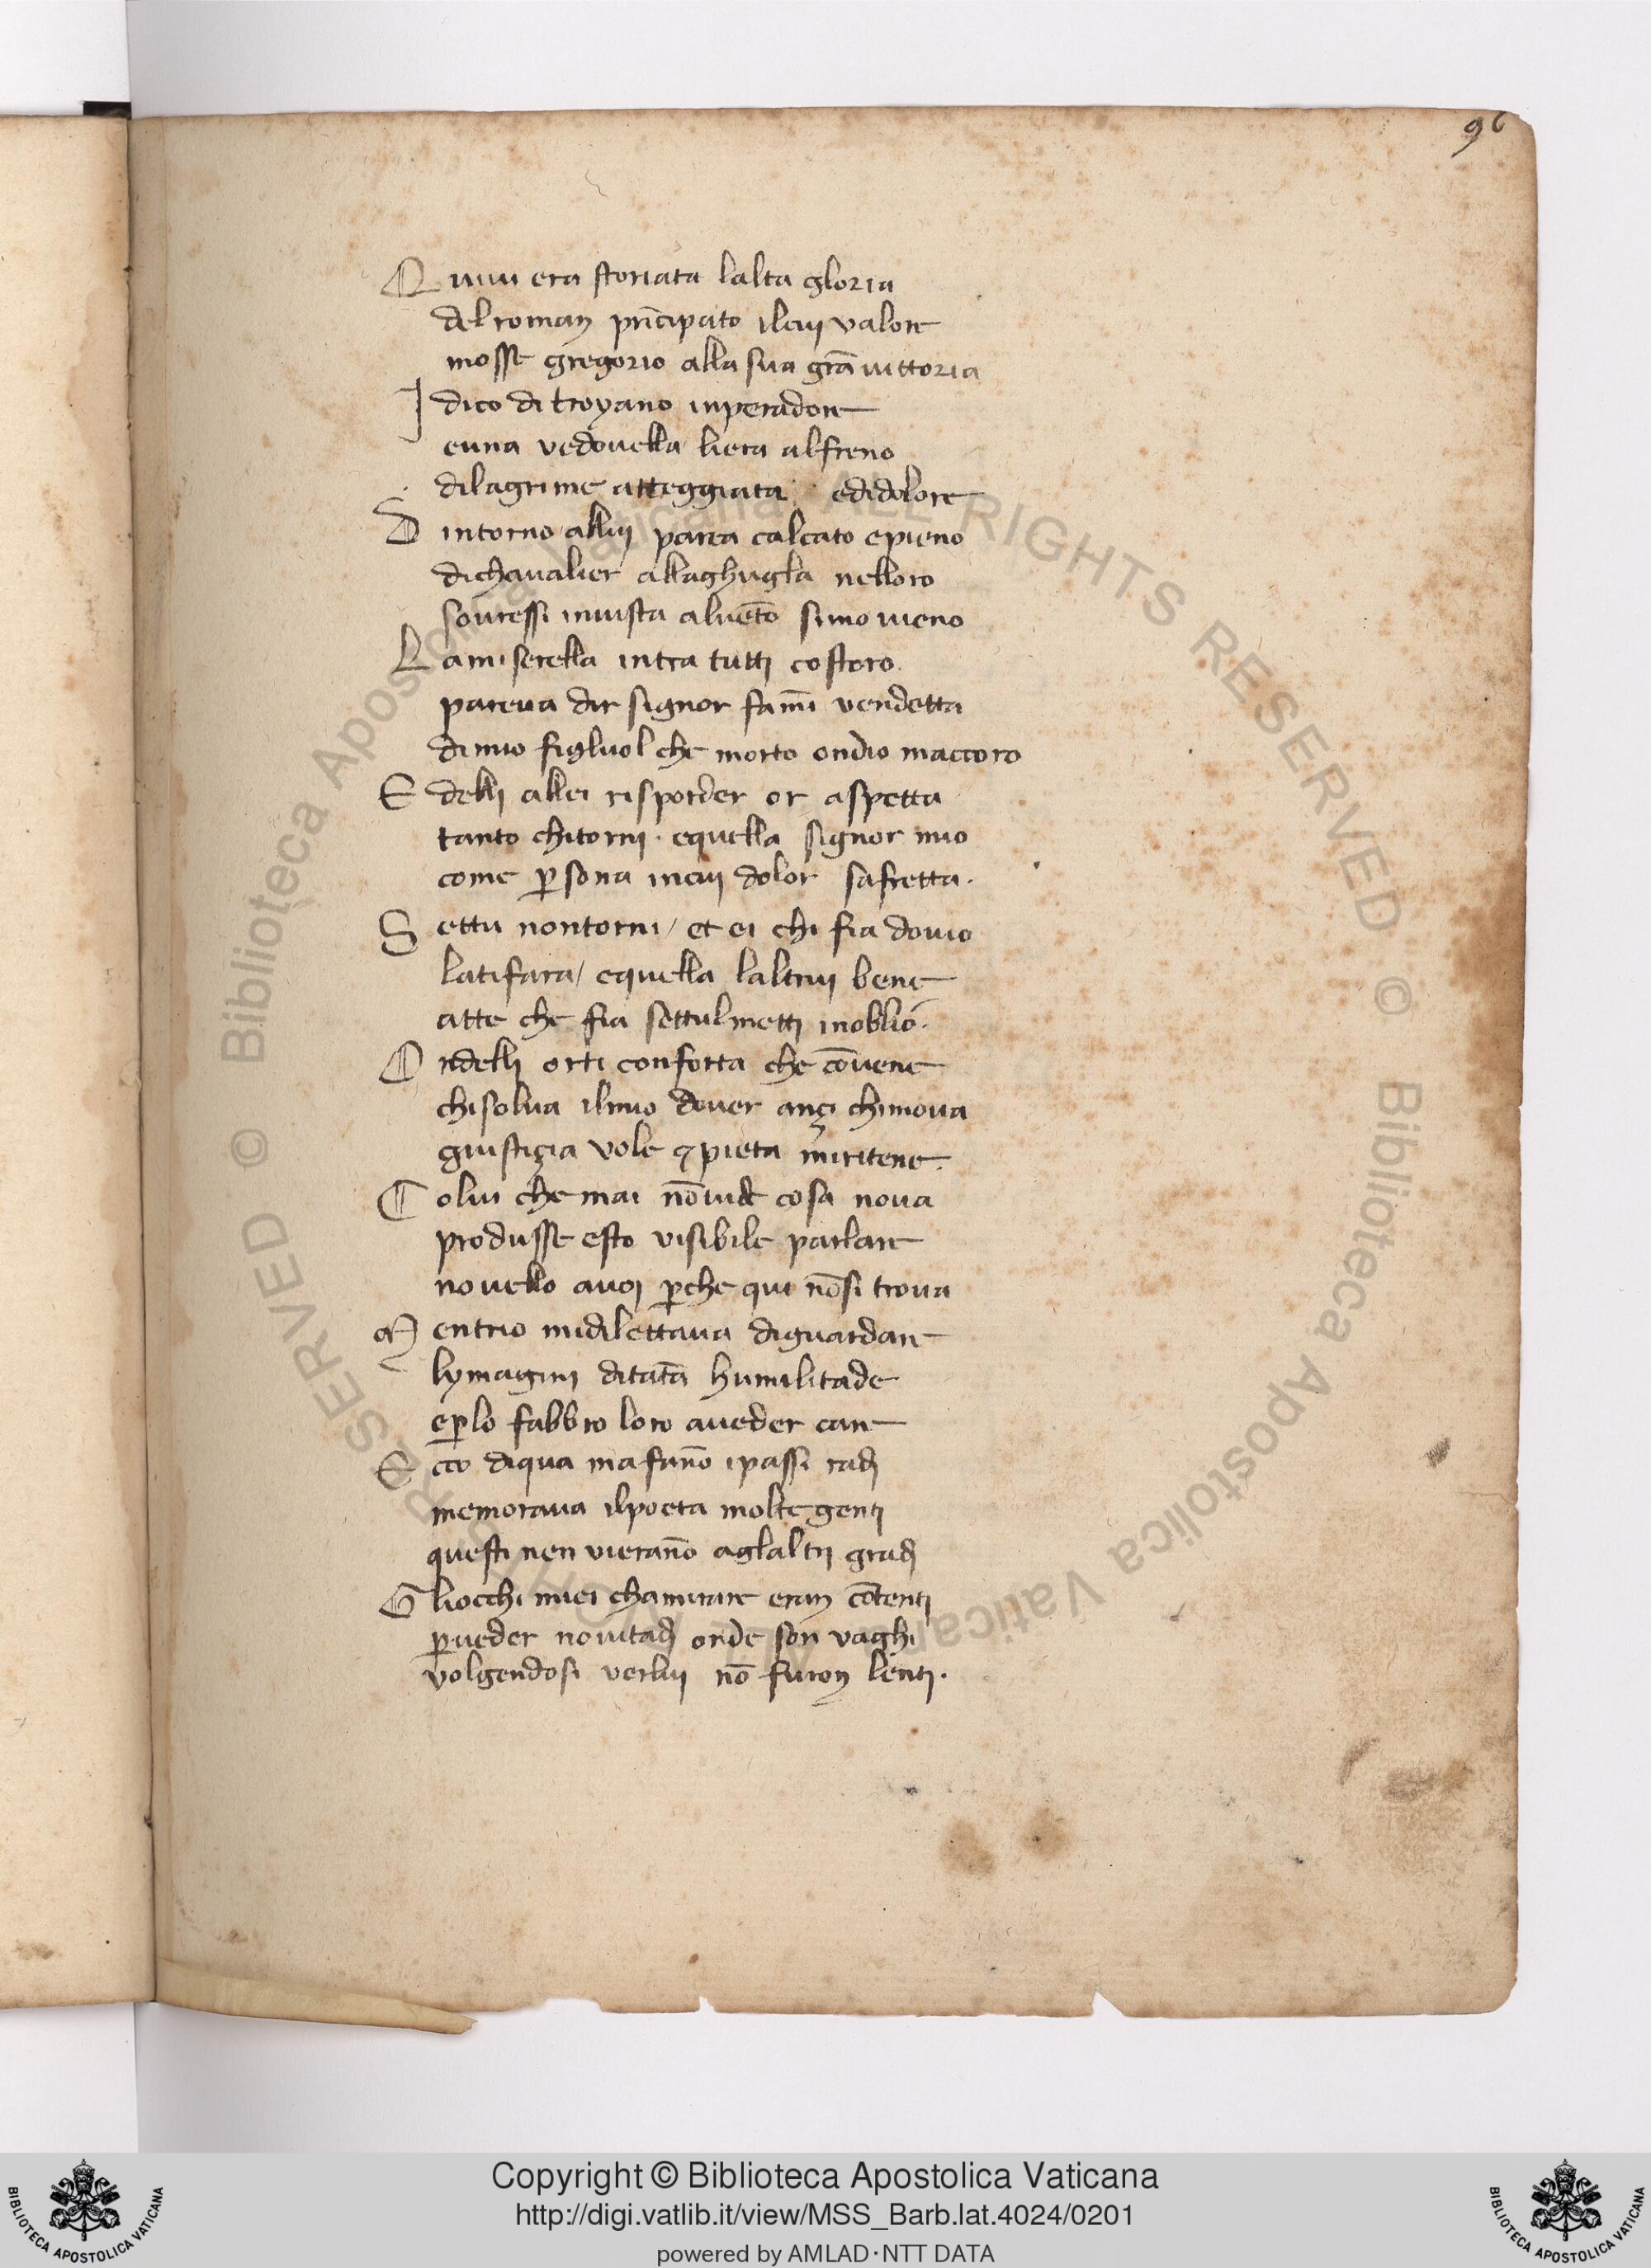 96
Quiui era storiata lalta gloria
del roman prīcipato ilcui valore
mosse gregorio alla sua grā uittoria
I dico di troyano inperadore
euna vedouella liera alfreno
dilagrime atteggiata edidolore
D intorno allui parea calcato epieno
dichaualier allaghugla nelloro
souressi inuista aluēto simouieno
L amiserella intra tutti costoro
pareua dir signor fammi vendetta
dimio figluol che morto ondio maccoro
E delli allei risponder or aspetta
tanto chitorni · equella signor mio
come ꝑsona incui dolor safretta ·
S ettu nontorni / et ei chi fia douio
latifara / equella laltrui bene
atte che fia settulmetti inoblio ·
O ndelli orti conforta che cōuene
chisolua ilmio douer ançi chimoua
giustiçia vole ⁊ pieta miritene
C olui che mai nōuide cosa noua
produsse esto visibile parlare
nouello auoi ꝑche qui nōsi troua
M entrio midilettaua diguardare
lymagini ditāta humilitade
eꝑlo fabbro loro aueder care
E cco diqua ma fanno ipassi radi
memoraua ilpoeta molte genti
questi nen vieranno aglaltri gradi
G liocchi miei chamirare eran cōtenti
ꝑueder nouitadi onde son vaghi
volgendosi verlui nō furon lenti ·
Copyright © Biblioteca Apostolica Vaticana
http://digi.vatlib.it/view/MSS_Barb.lat.4024/0201
powered by AMLAD·NTT DATA
BIBLIOTECA APOSTOLICA VATICANA
BIBLIOTECA APOSTOLICA VATICANA